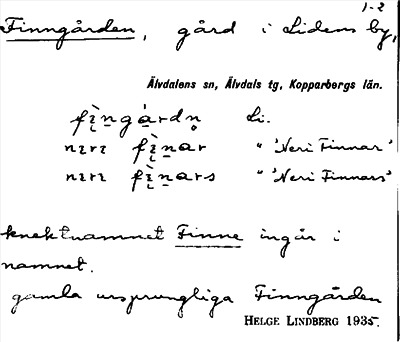 1-2
Finngården, gård i Lidens by,
Älvdalens sn, Älvdals tg, Kopparbergs län.
Li.
" 'Neri Finnar'
" 'Neri Finnars'
knektnamnet Finne ingår i
namnet.
gamla ursprungliga Finngården
HELGE LINDBERG 1935.